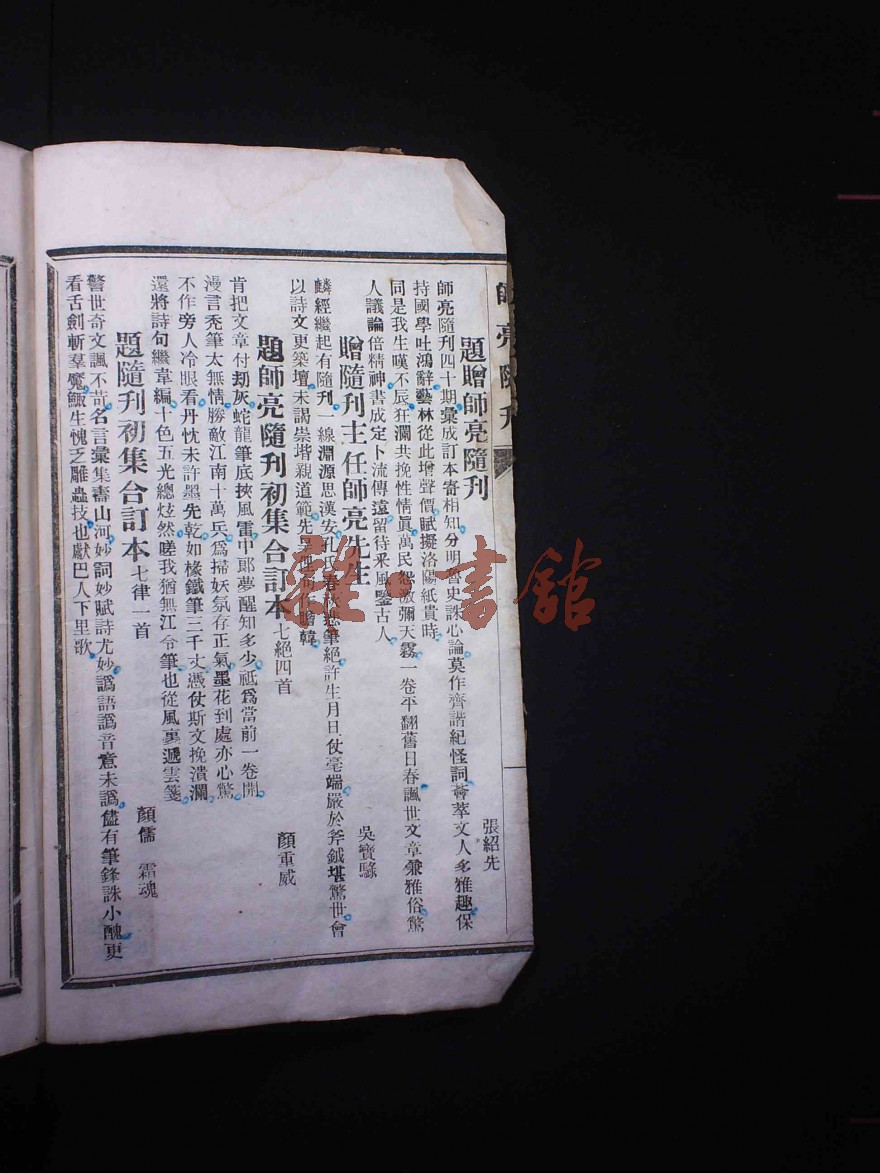 師亮隨刊
題贈師亮隨刊
張紹先
師亮隨刊四十期彙成訂本寄相知分明魯史誅心論莫作齊諧紀怪詞薈萃文人多雅趣保
持國學吐鴻辭藝林從此增聲價賦擬洛陽紙貴時
同是我生嘆不辰狂瀾共挽性情眞萬民怨激彌天霧一卷平翻舊日春諷世文章兼雅俗驚
人議論倍精神書成定卜流傳遠留待釆風鑒古人
贈隨刊主任師亮先生
吳寶驥
麟經繼起有隨刊一線淵源思漢安孔氏春秋悲筆絕許生月日仗毫端嚴於斧鉞堪驚世會
以詩文更築壇未謁崇堦親道範先瞻韓
題師亮隨刊初集合訂本七絕四首
顏重威
肯把文章付劫灰蛇龍筆底挾風雷中郞夢醒知多少祗爲當前一卷開
漫言禿筆太無情勝敵江南十萬兵爲掃妖氛存正氣墨花到處亦心驚
不作旁人冷眼看丹忱未許墨先乾如椽鐵筆三千丈憑仗斯文挽潰瀾
還將詩句繼韋編十色五光總炫然嗟我猶無江令筆也從風裏遞雲箋
題隨刊初集合訂本七律一首
顏儒 霜魂
警世奇文諷不苛名言彙集壽山河妙詞妙賦詩尤妙譌語譌音意未譌儘有筆鋒誅小醜更
看舌劍斬羣魔鯫生愧乏雕蟲技也獻巴人下里歌
雜·書館